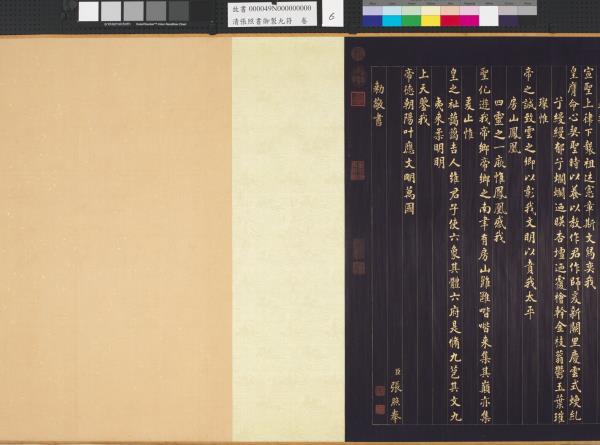 故書 000049N000000000
清張照書御製九符 卷
6
宣聖上律下襲祖述憲章斯文馬奕我
皇膺命心契聖時以養以教作君作師爰新闕里慶雲式煥糺
兮縵縵郁兮爛爛迺暎杏壇迺覆檜幹金枝蓊鬱玉葉璀
璨惟
帝之誠致雲之卿以彰我文明以賁我太平
房山鳳凰
四靈之一厥惟鳳凰感我
聖化遊我帝鄉帝鄉之南聿有房山雝雝喈喈來集其巔亦集
爰止惟
皇之祉藹藹吉人維君子使六象其體六府是脩九苞其文九
夷來柔明明
上天鑒我
帝德朝陽叶應文明萬國
臣張照奉
勅敬書